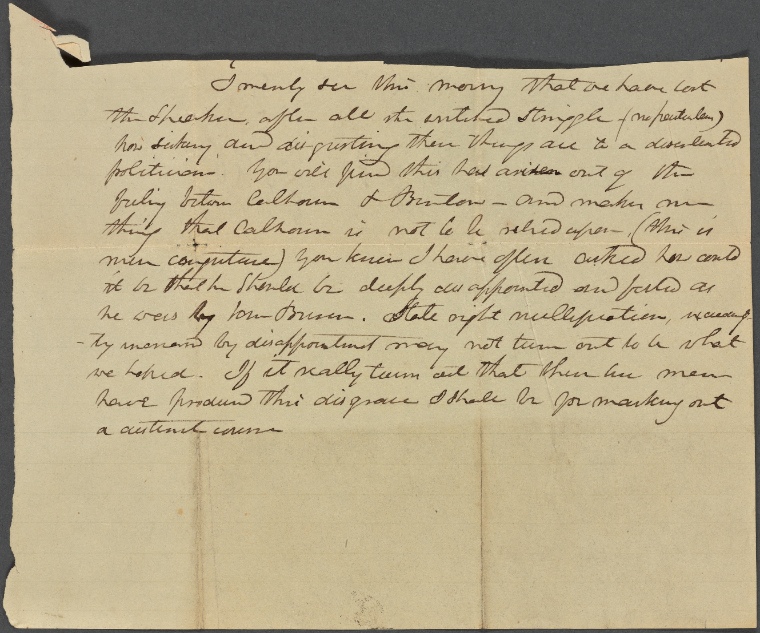 I merely see this morng that we have lost
the Speaker, after all the entitled struggle
how sickng and disgusting these things are to a
politician. You will find this has arisen out of the
feeling between Calhoun & Benton - and makes me
thing that Calhoun is not to be relied upon, (this is
mere conjecture) You know I have often asked how could
it be that he should be deeply disappointed and foiled as
he was by Van Buren. State right nullification,
by disappointment may not turn out to be what
we hoped. If it really turns out that these men
have produced this disgrace I shall be for marking out
a distinct course